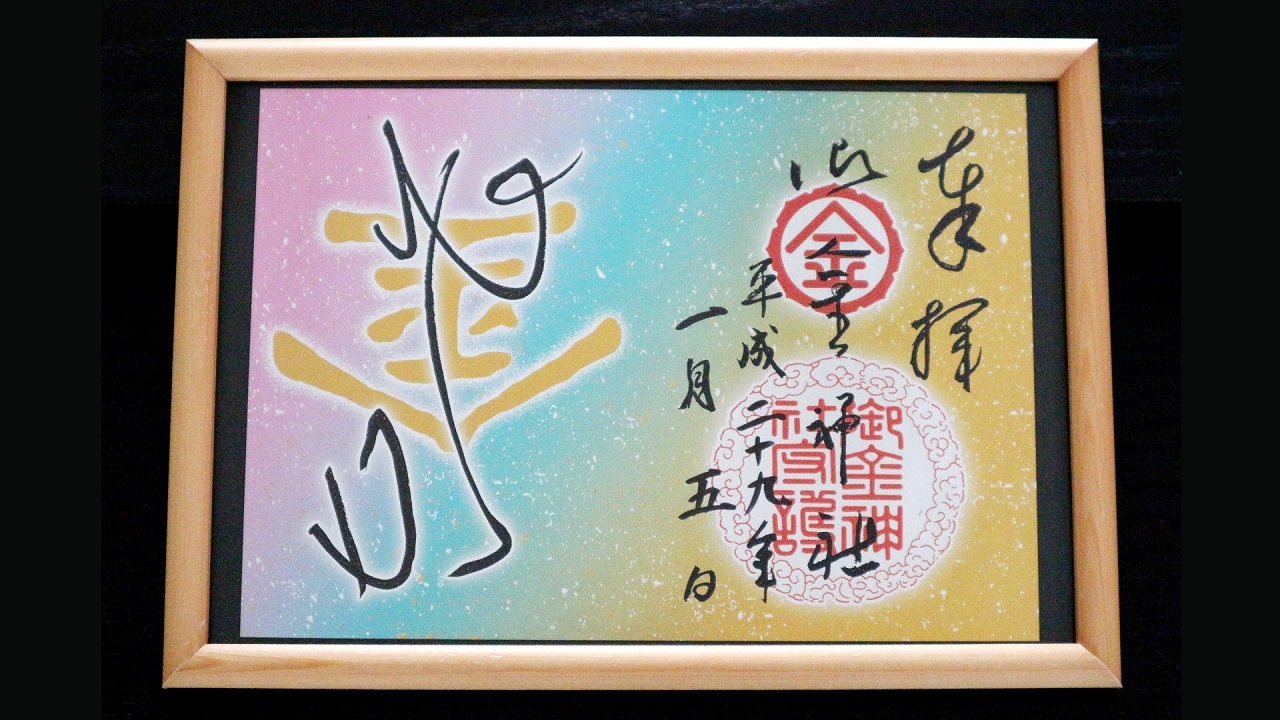 奉拝
御金神社
平成二十九年
一月五日
金
御金神
社守護